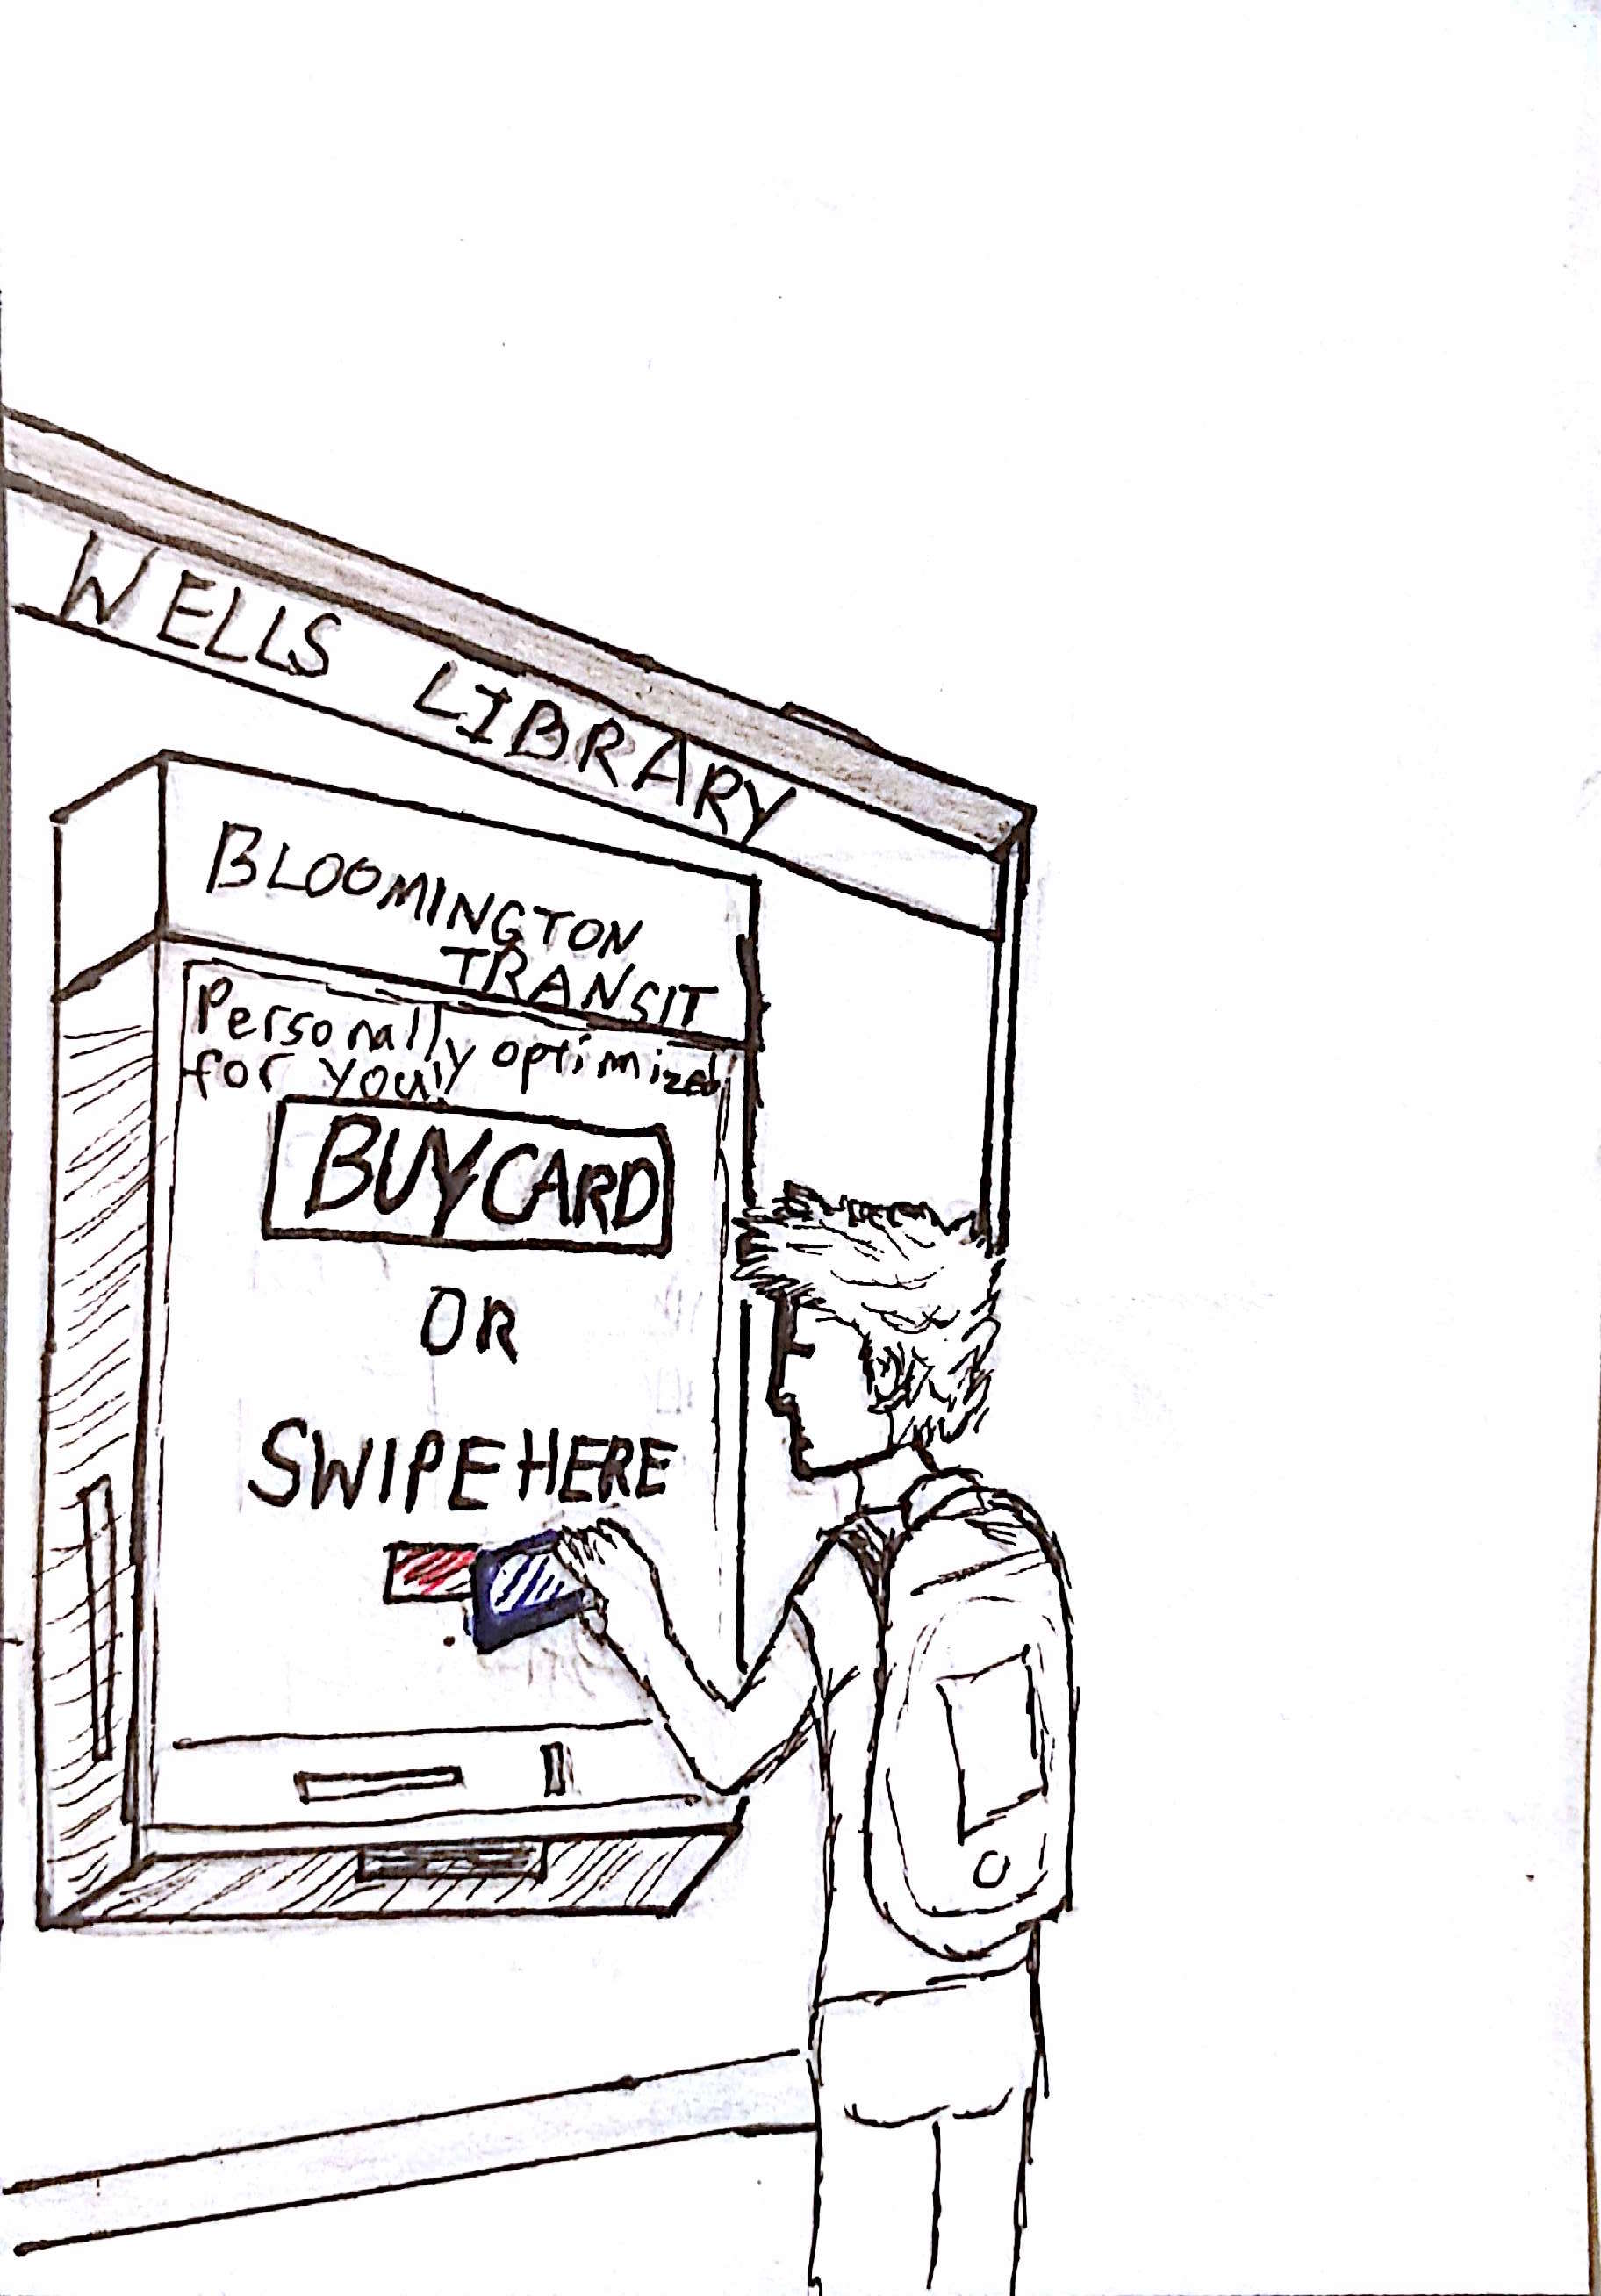 WELLS LIBRARY
BLOOMINGTON
TRANSIT
Personally optimized
for you!
BUY CARD
OR
SWIPE HERE